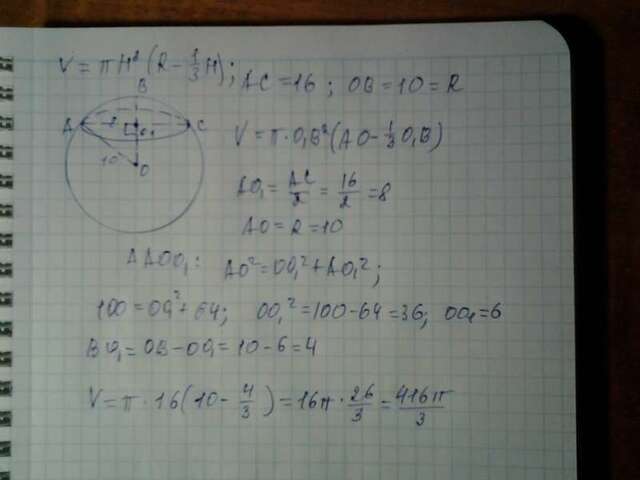 V = πH²(R - 1/3 H); AC = 16; OB = 10 = R
B
A
8
O₁
C
10
O
V = π · O₁B²(AO - 1/3 O₁B)
AO₁ = AC/2 = 16/2 = 8
AO = R = 10
ΔAOO₁: AO² = OO₁² + AO₁²;
100 = OO₁² + 64; OO₁² = 100 - 64 = 36; OO₁ = 6
BO₁ = OB - OO₁ = 10 - 6 = 4
V = π · 16(10 - 4/3) = 16π · 26/3 = 416π/3